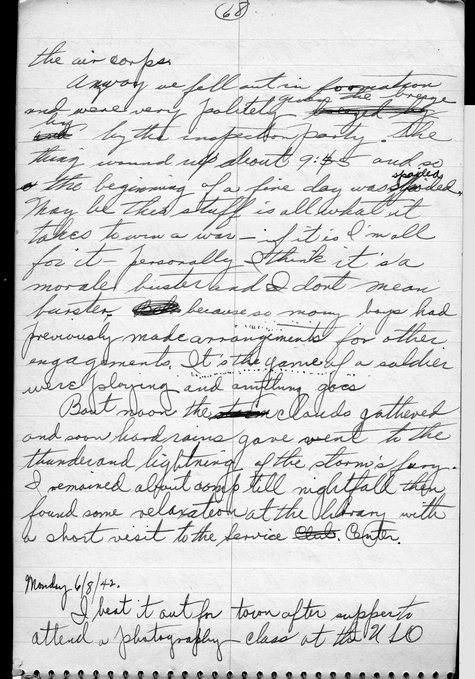 (68)
the air corps.
Anyway we fell out in formation
and were very politely given the breeze
by by the inspection party. The
thing wound up about 9:45 and so
the beginning of a fine day was spoiled.
May be this stuff is all what it
takes to win a war – if it is I'm all
for it – personally I think it's a
morale buster and I dont mean
burster, because so many boys had
previously made arrangements for other
engagements. It's the game of a soldier
were playing and anything goes
Bout noon the clouds gathered
and soon hard rains gave went to the
thunder and lightning of the storm's fury.
I remained about camp till nightfall then
found some relaxation at the library with
a short visit to the Service Club Center.
Monday 6/8/42.
I beat it out for town after supper to
attend a photography class at the USO